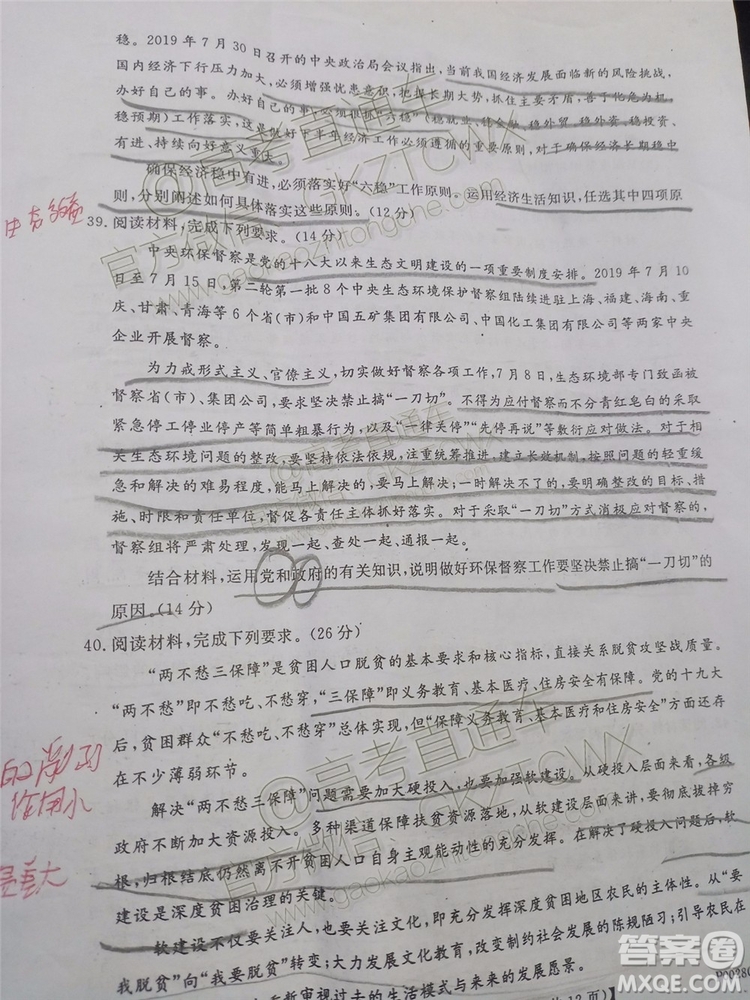 稳。2019年7月30日召开的中央政治局会议指出,当前我国经济发展面临新的风险挑战,
国内经济下行压力加大,必须增强忧患意识,把握长期大势,抓住主要矛盾,善于化危为机,
办好自己的事。办好自己的事,必须狠抓“六稳”(稳就业、稳金融、稳外贸、稳外资、稳投资、
稳预期)工作落实,这是做好下半年经济工作必须遵循的重要原则,对于确保经济长期稳中
有进、持续向好意义重大。
确保经济稳中有进,必须落实好“六稳”工作原则。运用经济生活知识,任选其中四项原
则,分别阐述如何具体落实这些原则。(12分)
39.阅读材料,完成下列要求。(14分)
中央环保督察是党的十八大以来生态文明建设的一项重要制度安排。2019年7月10
日至7月15日,第二轮第一批8个中央生态环境保护督察组陆续进驻上海、福建、海南、重
庆、甘肃、青海等6个省(市)和中国五矿集团有限公司、中国化工集团有限公司等两家中央
企业开展督察。
为力戒形式主义、官僚主义,切实做好督察各项工作,7月8日,生态环境部专门致函被
督察省(市)、集团公司,要求坚决禁止搞“一刀切”。不得为应付督察而不分青红皂白的采取
紧急停工停业停产等简单粗暴行为,以及“一律关停”“先停再说”等敷衍应对做法。对于相
关生态环境问题的整改,要坚持依法依规,注重统筹推进,建立长效机制,按照问题的轻重缓
急和解决的难易程度,能马上解决的,要马上解决;一时解决不了的,要明确整改的目标、措
施、时限和责任单位,督促各责任主体抓好落实。对于采取“一刀切”方式消极应对督察的,
督察组将严肃处理,发现一起、查处一起、通报一起。
结合材料,运用党和政府的有关知识,说明做好环保督察工作要坚决禁止搞“一刀切”的
原因。(14分)
40.阅读材料,完成下列要求。(26分)
“两不愁三保障”是贫困人口脱贫的基本要求和核心指标,直接关系脱贫攻坚战质量。
“两不愁”即不愁吃、不愁穿,“三保障”即义务教育、基本医疗、住房安全有保障。党的十九大
后,贫困群众“不愁吃、不愁穿”总体实现,但“保障义务教育、基本医疗和住房安全”方面还存
在不少薄弱环节。
解决“两不愁三保障”问题需要加大硬投入,也要加强软建设。从硬投入层面来看,各级
政府不断加大资源投入。多种渠道保障扶贫资源落地,从软建设层面来看,要彻底拔掉穷
根,归根结底仍然离不开贫困人口自身主观能动性的充分发挥。在解决了硬投入问题后,软
建设是深度贫困治理的关键。
软建设不仅要关注人,也要关注文化,即充分发挥深度贫困地区农民的主体性。从“要
我脱贫”向“我要脱贫”转变;大力发展文化教育,改变制约社会发展的陈规陋习;引导农民在
重新审视过去的生活模式与未来的发展愿景。
@高考直通车
官方微信:GKZTCWX
www.gaokaozhitongche.com
答案圈
MXQE.COM